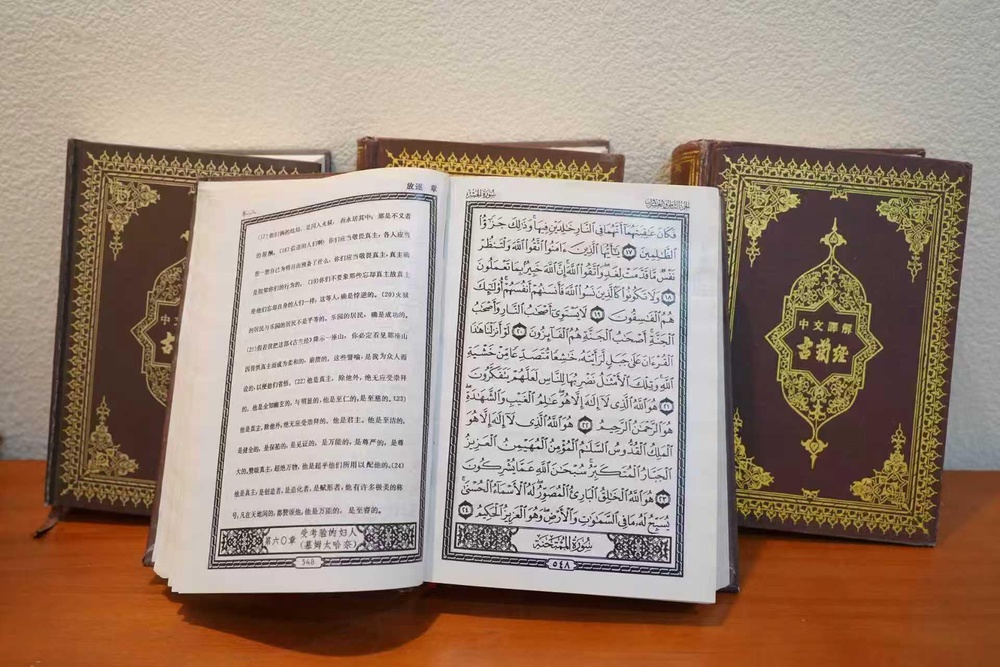 放逐 章
(17)他们俩的结局,是同入火狱,而永居其中;那是不义者
的报酬。(18)信道的人们啊!你们应当敬畏真主,各人应当
想一想自己为明日而预备了什么,你们应当敬畏真主,真主确
是彻知你们的行为的。(19)你们不要象那些忘却真主故真主
使他们忘却自身的人们一样,这等人,确是悖逆的。(20)火狱
的居民与乐园的居民不是平等的。乐园的居民,确是成功的。
(21)假若我把这部《古兰经》降示一座山,你必定看见那座山
因畏惧真主而成为柔和的,崩溃的。这些譬喻,是我为众人而
设的,以便他们省悟。(22)他是真主,除他外,绝无应受崇拜
的。他是全知幽玄的,与明显的,他是至仁的,是至慈的。(23)
他是真主,除他外,绝无应受崇拜的。他是君主,他是至洁的,
是健全的,是保佑的,是见证的,是万能的,是尊严的,是尊
大的。赞颂真主,超绝万物,他是超乎他们所用以配他的。(24)
他是真主,是创造者,是造化者,是赋形者,他有许多极美的称
号,凡在天地间的,都赞颂他,他是万能的,是至睿的。
第六〇章 受考验的妇人
(慕姆太哈奈)
548
سُورَةُ الحَشْرِ
الجُزْءُ الثَّامِنُ وَالعِشْرُونَ
فَكَانَ عَٰقِبَتَهُمَآ أَنَّهُمَا فِى ٱلنَّارِ خَٰلِدَيْنِ فِيهَا وَذَٰلِكَ جَزَٰٓؤُا۟
ٱلظَّٰلِمِينَ ١٧ يَٰٓأَيُّهَا ٱلَّذِينَ ءَامَنُوا۟ ٱتَّقُوا۟ ٱللَّهَ وَلْتَنظُرْ
نَفْسٌ مَّا قَدَّمَتْ لِغَدٍ وَٱتَّقُوا۟ ٱللَّهَ إِنَّ ٱللَّهَ خَبِيرٌۢ بِمَا تَعْمَلُونَ
١٨ وَلَا تَكُونُوا۟ كَٱلَّذِينَ نَسُوا۟ ٱللَّهَ فَأَنسَىٰهُمْ أَنفُسَهُمْ أُو۟لَٰٓئِكَ
هُمُ ٱلْفَٰسِقُونَ ١٩ لَا يَسْتَوِىٓ أَصْحَٰبُ ٱلنَّارِ وَأَصْحَٰبُ
ٱلْجَنَّةِ أَصْحَٰبُ ٱلْجَنَّةِ هُمُ ٱلْفَآئِزُونَ ٢٠ لَوْ أَنزَلْنَا هَٰذَا
ٱلْقُرْءَانَ عَلَىٰ جَبَلٍ لَّرَأَيْتَهُۥ خَٰشِعًا مُّتَصَدِّعًا مِّنْ خَشْيَةِ
ٱللَّهِ وَتِلْكَ ٱلْأَمْثَٰلُ نَضْرِبُهَا لِلنَّاسِ لَعَلَّهُمْ يَتَفَكَّرُونَ
٢١ هُوَ ٱللَّهُ ٱلَّذِى لَآ إِلَٰهَ إِلَّا هُوَ عَٰلِمُ ٱلْغَيْبِ وَٱلشَّهَٰدَةِ
هُوَ ٱلرَّحْمَٰنُ ٱلرَّحِيمُ ٢٢ هُوَ ٱللَّهُ ٱلَّذِى لَآ إِلَٰهَ إِلَّا هُوَ
ٱلْمَلِكُ ٱلْقُدُّوسُ ٱلسَّلَٰمُ ٱلْمُؤْمِنُ ٱلْمُهَيْمِنُ ٱلْعَزِيزُ
ٱلْجَبَّارُ ٱلْمُتَكَبِّرُ سُبْحَٰنَ ٱللَّهِ عَمَّا يُشْرِكُونَ
٢٣ هُوَ ٱللَّهُ ٱلْخَٰلِقُ ٱلْبَارِئُ ٱلْمُصَوِّرُ لَهُ ٱلْأَسْمَآءُ ٱلْحُسْنَىٰ
يُسَبِّحُ لَهُۥ مَا فِى ٱلسَّمَٰوَٰتِ وَٱلْأَرْضِ وَهُوَ ٱلْعَزِيزُ ٱلْحَكِيمُ ٢٤
سُورَةُ المُمْتَحنَة
٥٤٨
中文譯解
古蘭經
中
古